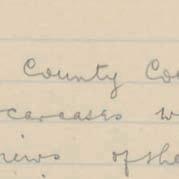 County Co
carcases w
news of the